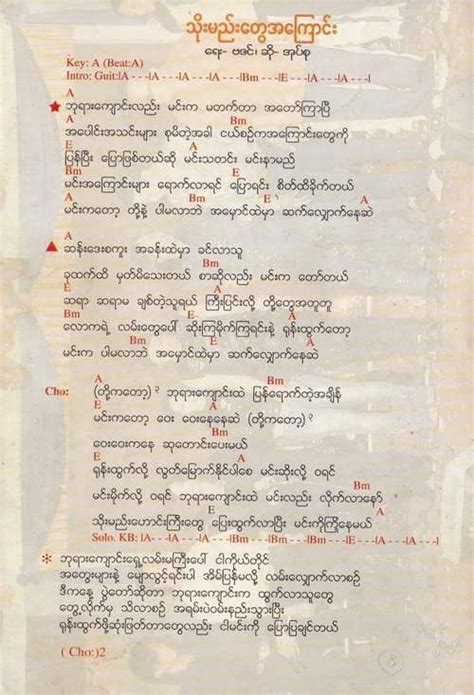 သိုးမည်းတွေအကြောင်း
ရေး- ဗဒင်၊ ဆို- အုပ်စု
Key: A (Beat:A)
Intro: Guit:lA - - -lA - - -lA - - -lA - - -lBm - - -lE - - -lA - - -lA - - -l
A
★ ဘုရားကျောင်းလည်း မင်းက မတက်တာ အတော်ကြာပြီ
A Bm
အပေါင်းအသင်းများ စုမိတဲ့အခါ ငယ်စဉ်ကအကြောင်းတွေကို
E A
ပြန်ပြီး ပြောဖြစ်တယ်ဆို မင်းသတင်း မင်းနာမည်
Bm E
မင်းအကြောင်းများ ရောက်လာရင် ပြောရင်း စိတ်ထိခိုက်တယ်
Bm E A
မင်းကတော့ တို့နဲ့ ပါမလာဘဲ အမှောင်ထဲမှာ ဆက်လျှောက်နေဆဲ
A
▲ ဆန်းဒေးစကူး အခန်းထဲမှာ ခင်လာသူ
Bm
ခုထက်ထိ မှတ်မိသေးတယ် စာဆိုလည်း မင်းက တော်တယ်
E A
ဆရာ ဆရာမ ချစ်တဲ့သူရယ် ကြီးပြင်းလို့ တို့တွေအတူတူ
Bm E
လောကရဲ့ လမ်းတွေပေါ် ဆိုးကြမိုက်ကြရင်းနဲ့ ရုန်းထွက်တော့
A
မင်းက ပါမလာဘဲ အမှောင်ထဲမှာ ဆက်လျှောက်နေဆဲ
A Bm
Cho: (တို့ကတော့) ၃ ဘုရားကျောင်းထဲ ပြန်ရောက်တဲ့အချိန်
E A
မင်းကတော့ ဝေး ဝေးနေနေဆဲ (တို့ကတော့) ၃
Bm
ဝေးဝေးကနေ ဆုတောင်းပေးမယ်
E A
ရုန်းထွက်လို့ လွတ်မြောက်နိုင်ပါစေ မင်းဆိုးလို့ ဝရင်
Bm
မင်းမိုက်လို့ ဝရင် ဘုရားကျောင်းထဲ မင်းလည်း လိုက်လာနော်
E A
သိုးမည်းဟောင်းကြီးတွေ ပြေးထွက်လာပြီး မင်းကိုကြိုနေမယ်
Solo. KB: lA - - -lA - - -lBm - - -lBm - - -lBm - - -lE - - -lA - - -lA - - -l
* ဘုရားကျောင်းရှေ့လမ်းမကြီးပေါ် ငါကိုယ်တိုင်
အတွေးများနဲ့ မျောလွင့်ရင်းပါ အိမ်ပြန်မလို့ လမ်းလျှောက်လာစဉ်
ဒီကနေ့ ပွဲတော်ဆိုတာ ဘုရားကျောင်းက ထွက်လာသူတွေ
တွေ့လိုက်မှ သိလာစဉ် အရမ်းပဲဝမ်းနည်းသွားပြီး
ရုန်းထွက်ဖို့ဆုံးဖြတ်တာတွေလည်း ငါမင်းကို ပြောပြချင်တယ်
( Cho:)2